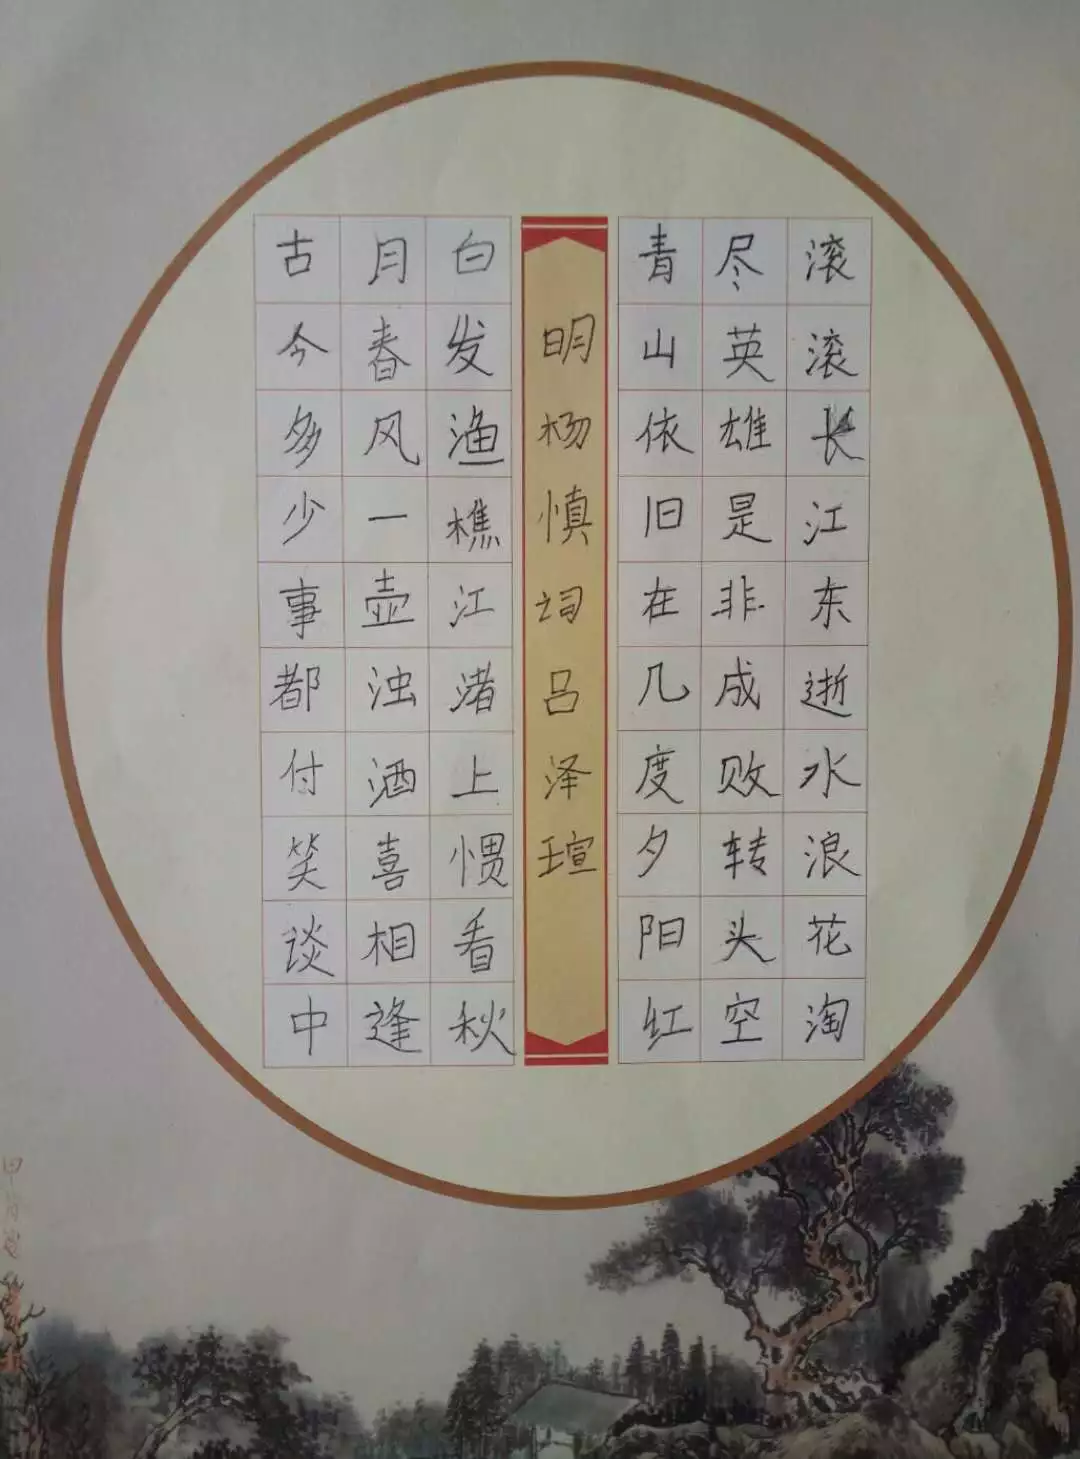 滚滚长江东逝水浪花淘
尽英雄是非成败转头空
青山依旧在几度夕阳红
明杨慎词吕泽瑄
白发渔樵江渚上惯看秋
月春风一壶浊酒喜相逢
古今多少事都付笑谈中